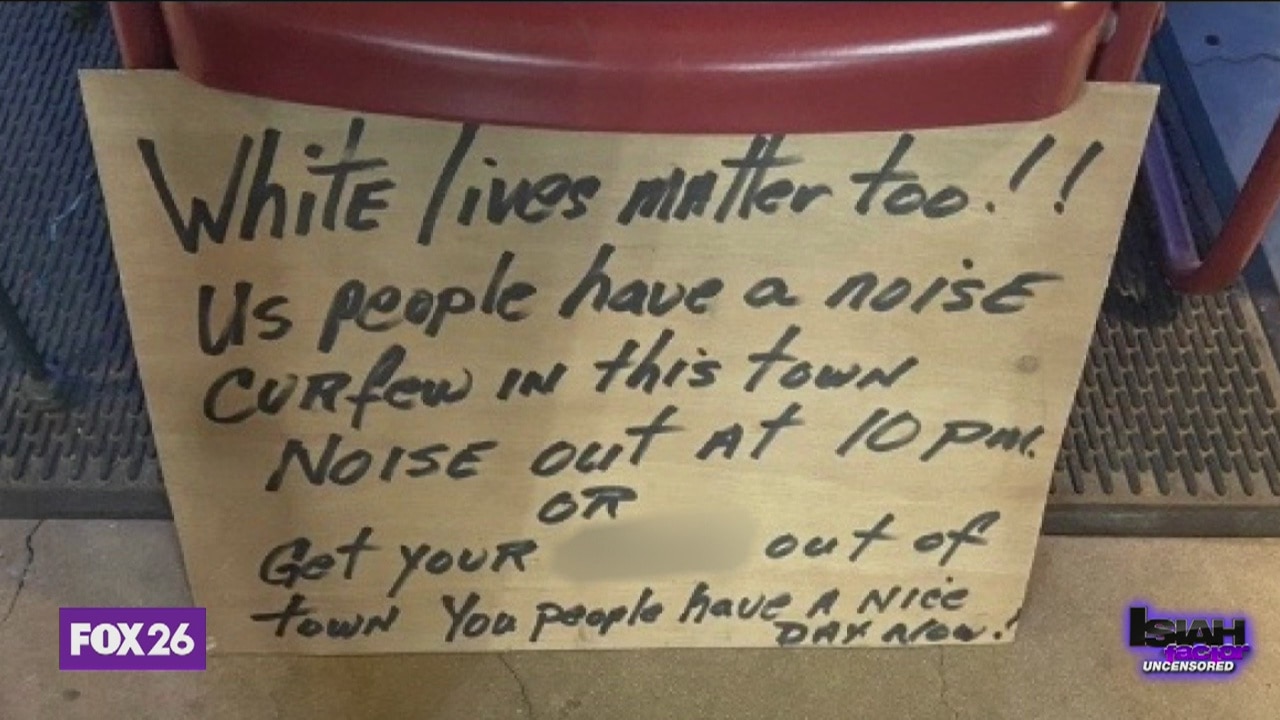 White lives matter too!!
Us people have a noise
curfew in this town
Noise out at 10 pm.
OR
Get your out of
town You people have a nice
day now.!
FOX 26
ISIAH
factor
UNCENSORED